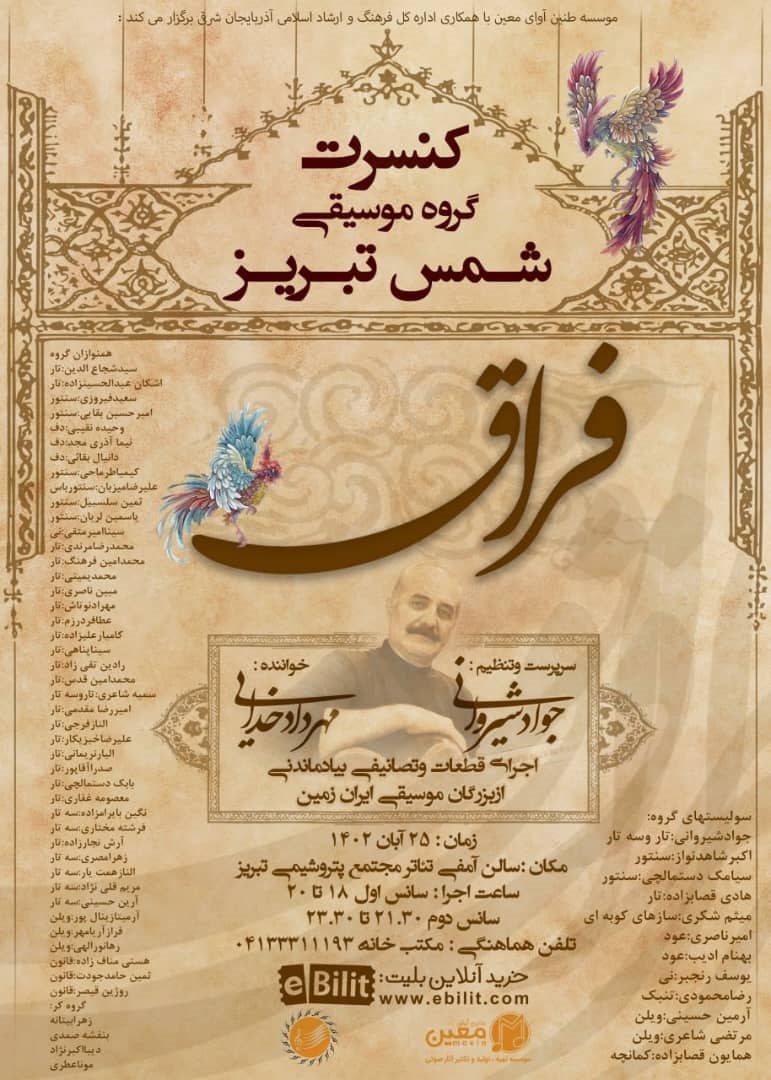 موسسه طنین آوای معین با همکاری اداره کل فرهنگ و ارشاد اسلامی آذربایجان شرقی برگزار می کند :
کنسرت
گروه موسیقی
شمس تبریز
فراق
همنوازان گروه
سیدشجاع الدین:تار
اشکان عبدالحسینزاده:تار
سعیدفیروزی:سنتور
امیرحسین بقایی:سنتور
وحیده نقیبی:دف
نیما آذری مجد:دف
دانیال بقائی:دف
کیمیاطرماحی:سنتور
علیرضامیزبان:سنتورباس
ثمین سلسبیل:سنتور
یاسمین لریان:سنتور
سیناامیرمتقی:نی
محمدرضامرندی:تار
محمدامین فرهنگ:تار
محمدیمینی:تار
مبین ناصری:تار
مهرادنوتاش:تار
عطافردرزم:تار
کامیارعلیزاده:تار
سیناپناهی:تار
رادین تقی زاد:تار
محمدامین قدس:تار
سمیه شاعری:تاروسه تار
امیررضا مقدمی:تار
النازفرجی:تار
علیرضاخبزیکار:تار
الیارنریمانی:تار
صدراآقاپور:تار
بابک دستمالچی:تار
معصومه غفاری:تار
نگین بابرامزاده:سه تار
فرشته مختاری:سه تار
آرش نجارزاده:تار
زهرامصری:سه تار
النازهمت یار:سه تار
مریم قلی نژاد:سه تار
آرین حسینی:سه تار
آرمیتازینال پور:ویلن
فرازآریامهر:ویلن
رهانورالهی:ویلن
هستی مناف زاده:قانون
ثمین حامدجودت:قانون
روژین قیصر:قانون
گروه کر:
زهرابیتانه
بنفشه صمدی
دیبااکبرنژاد
موناعطری
سرپرست وتنظیم :
جوادشیروانی
خواننده :
مهردادخدایی
اجرای قطعات وتصانیفی بیادماندنی
ازبزرگان موسیقی ایران زمین
زمان : ۲۵ آبان ۱۴۰۲
مکان :سالن آمفی تئاتر مجتمع پتروشیمی تبریز
ساعت اجرا : سانس اول ۱۸ تا ۲۰
سانس دوم ۲۱.۳۰ تا ۲۳.۳۰
تلفن هماهنگی : مکتب خانه ۰۴۱۳۳۳۱۱۱۹۳
خرید آنلاین بلیت : eBilit
www.ebilit.com
سولیستهای گروه:
جوادشیروانی:تار وسه تار
اکبرشاهدنواز:سنتور
سیامک دستمالچی:سنتور
هادی قصابزاده:تار
میثم شکری:سازهای کوبه ای
امیرناصری:عود
بهنام ادیب:عود
یوسف رنجبر:نی
رضامحمودی:تنبک
آرمین حسینی:ویلن
مرتضی شاعری:ویلن
همایون قصابزاده:کمانچه
معین
moein
موسسه تهیه ، تولید و تکثیر آثار صوتی